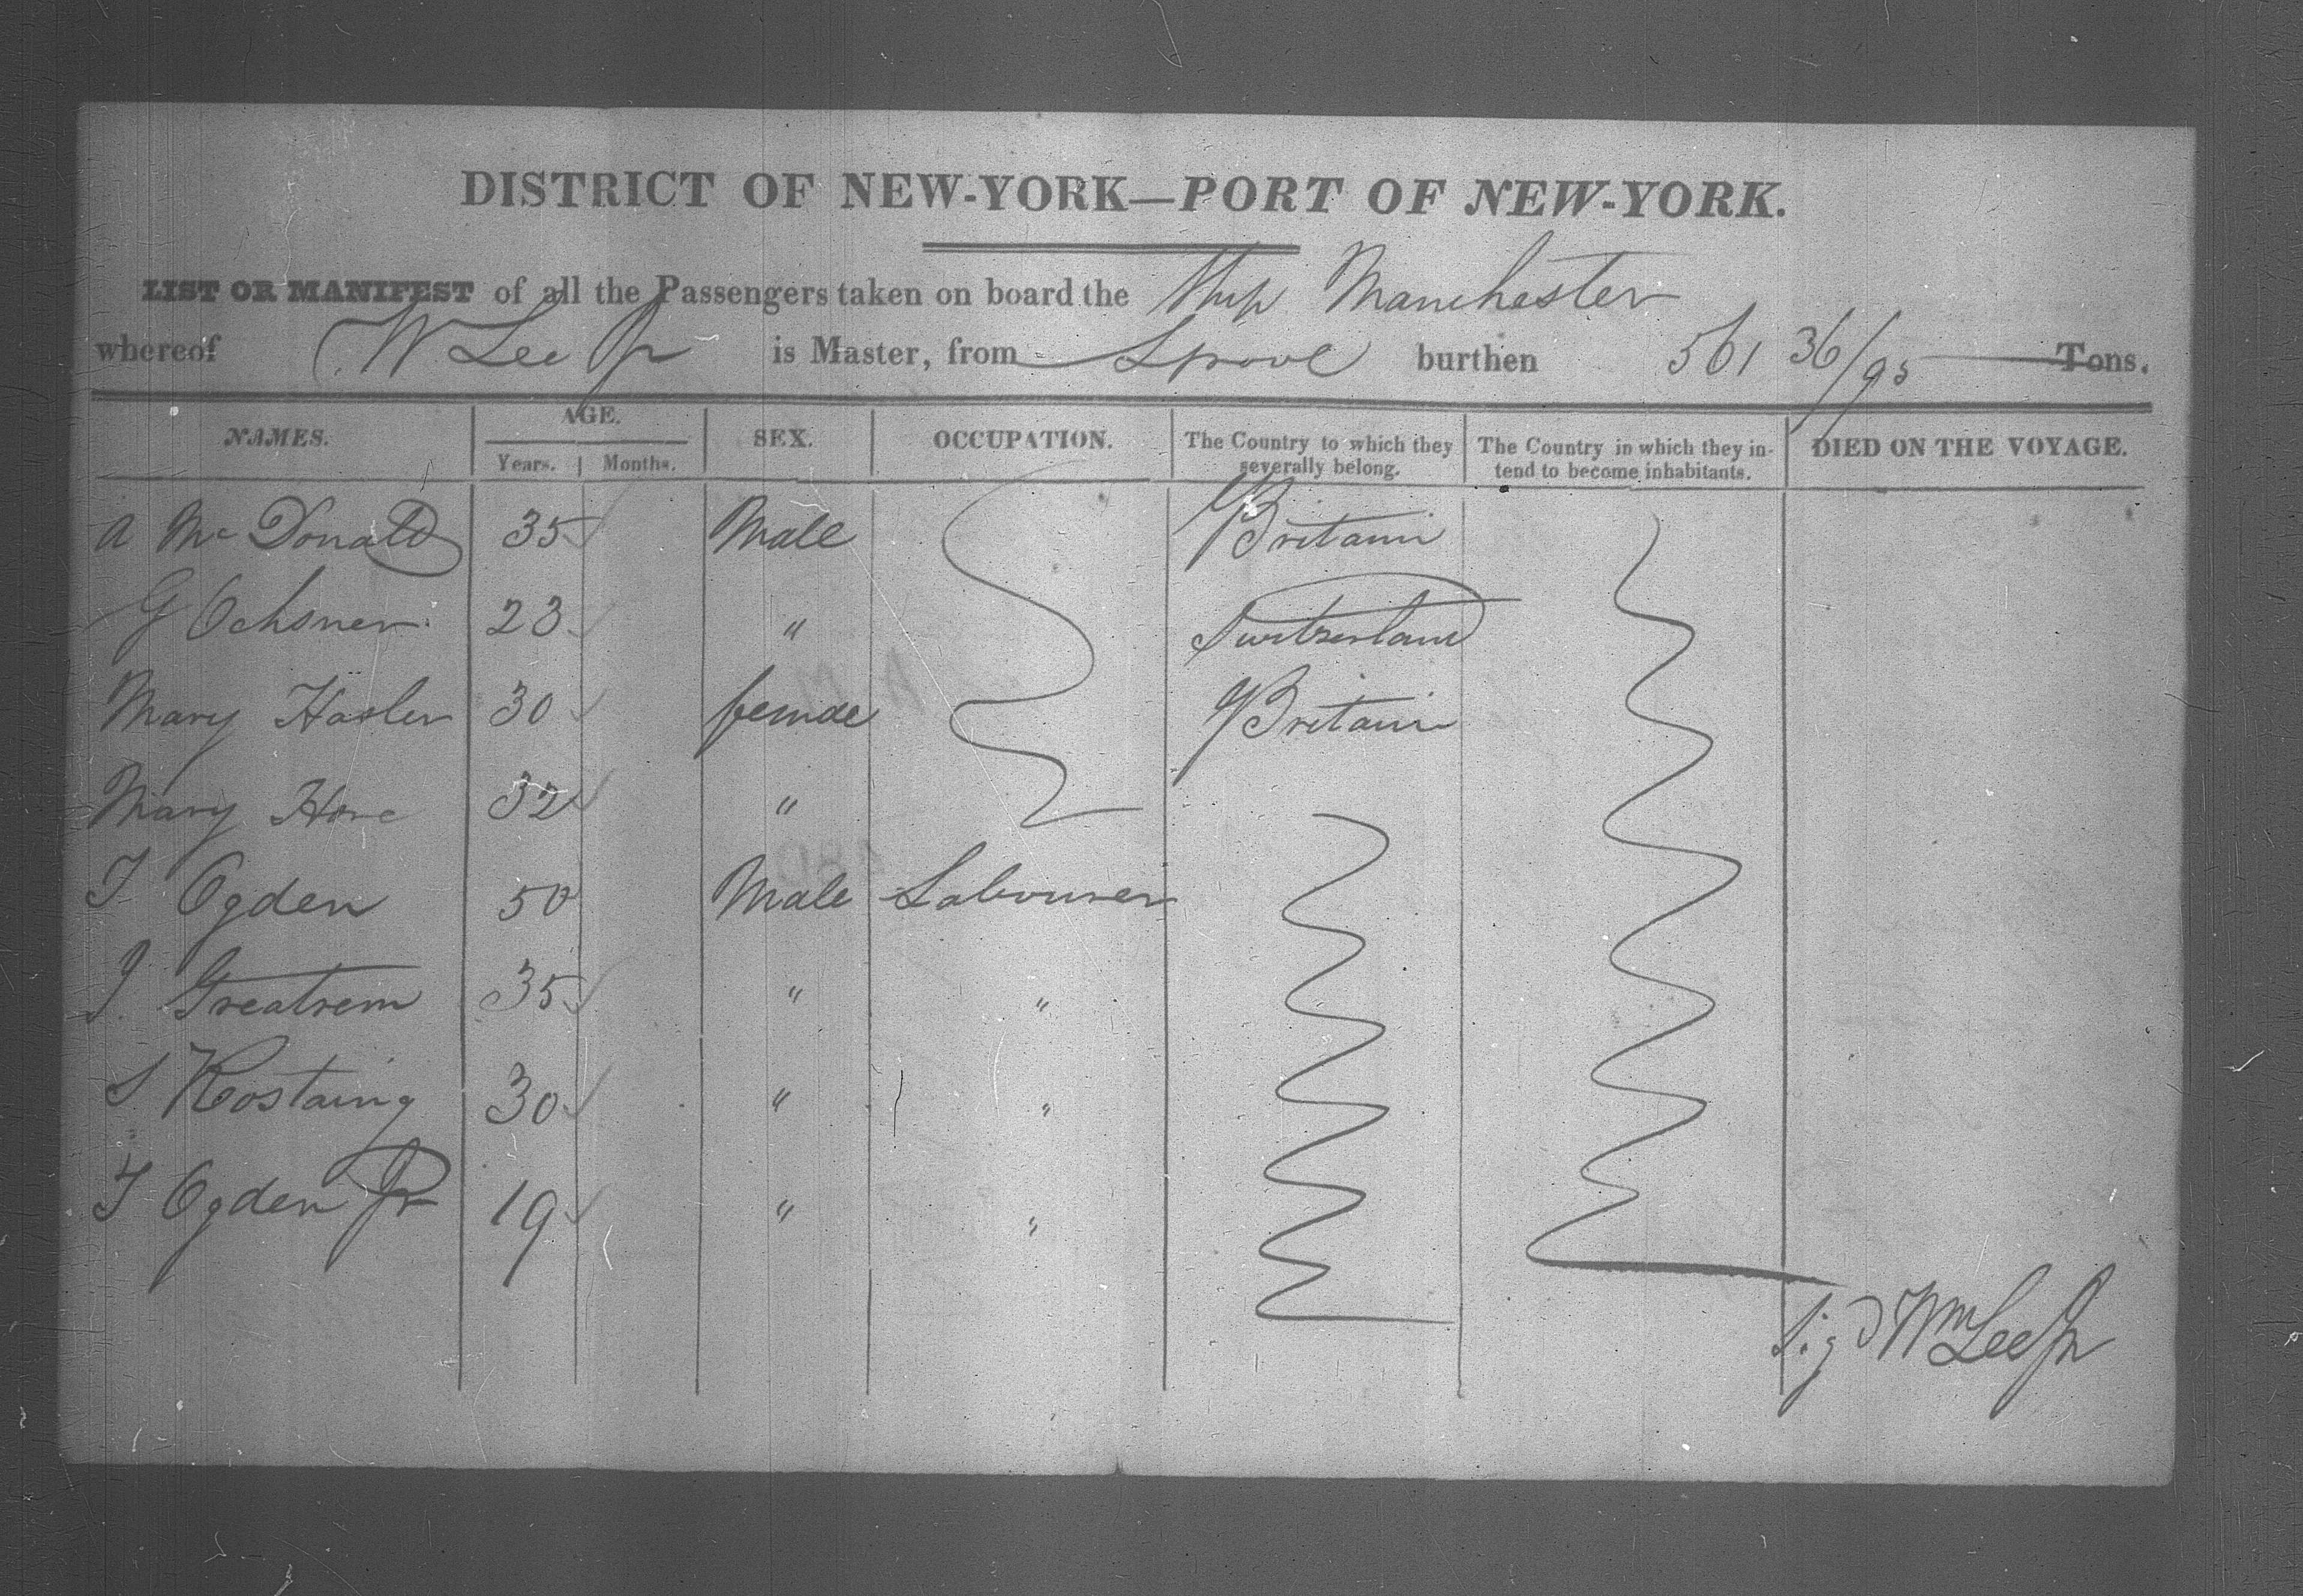 DISTRICT OF NEW-YORK—PORT OF NEW-YORK.
LIST OR MANIFEST of all the Passengers taken on board the Ship Manchester
whereof W Lee Jr is Master, from Lpool burthen 561 36/95 Tons.
NAMES. AGE. SEX. OCCUPATION. The Country to which they severally belong. The Country in which they intend to become inhabitants. DIED ON THE VOYAGE.
Years. Months.
A McDonald 35 Male G Britain
G Ochsner 23 " Switzerland
Mary Hasler 30 female G Britain
Mary Hore 32 "
T Ogden 50 Male Labourer
J. 35 " "
S 30 " "
T Ogden Jr 19 " "
Sigd Wm Lee Jr